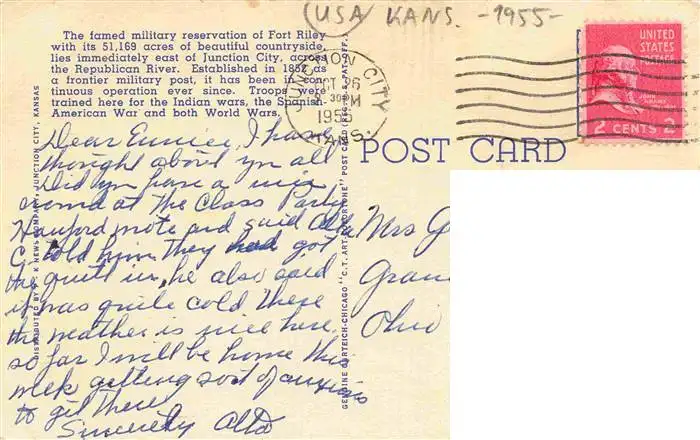 (USA) KANS. -1955-
The famed military reservation of Fort Riley
with its 51,169 acres of beautiful countryside,
lies immediately east of Junction City, across
the Republican River. Established in 1852 as
a frontier military post, it has been in con-
tinuous operation ever since. Troops were
trained here for the Indian wars, the Spanish-
American War and both World Wars.
JUNCTION CITY
OCT 26
30 PM
1955
KANS.
UNITED
STATES
POSTAGE
JOHN
ADAMS
2 CENTS 2
POST CARD
Dear Eunice, I have
thought about yn all
Did yn have a nice
crowd at The Class Party
Hanford note and said
C. told him They had got
the quilt in, he also said
it was quite cold There
the weather is nice here.
so far I will be home this
week getting sort of anxious
to get There
Sincerely Alta
Mrs G
Gran
Ohio
DISTRIBUTED BY NEWS COMPANY, JUNCTION CITY, KANSAS
GENUINE CURTEICH-CHICAGO "C.T. ART-COLORTONE" POST CARD (REG. U.S. PAT. OFF.)